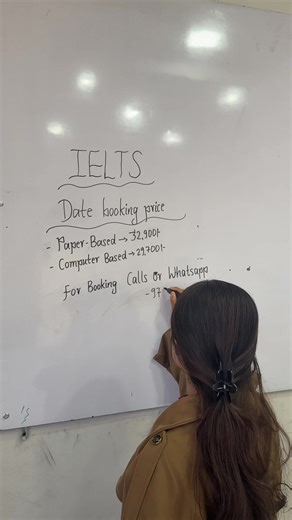 IELTS
Date booking price
- Paper-Based → 32,900/-
- Computer Based → 29,700/-
for Booking Calls or Whatsapp
- 97